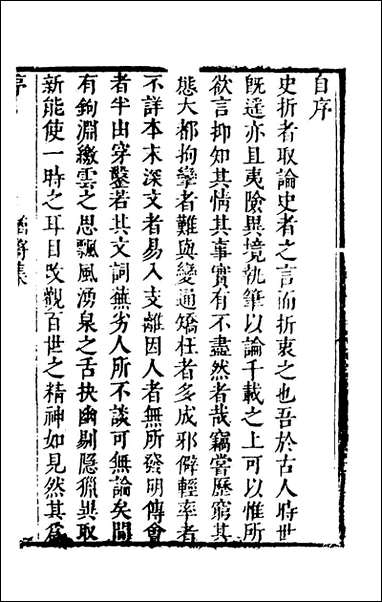 自序
史折者取論史者之言而折衷之也吾於古人時世
旣遥亦且夷險異境執筆以論千載之上可以惟所
欲言抑知其情其事實有不盡然者哉竊嘗歷窮其
態大都拘攣者難與變通矯枉者多成邪僻輕率者
不詳本末深文者易入支離因人者無所發明傅會
者半由穿鑿若其文詞蕪劣人所不談可無論矣間
有鉤淵繳雲之思飄風湧泉之舌抉幽剔隱獵異取
新能使一時之耳目改觀百世之精神如見然其爲
序